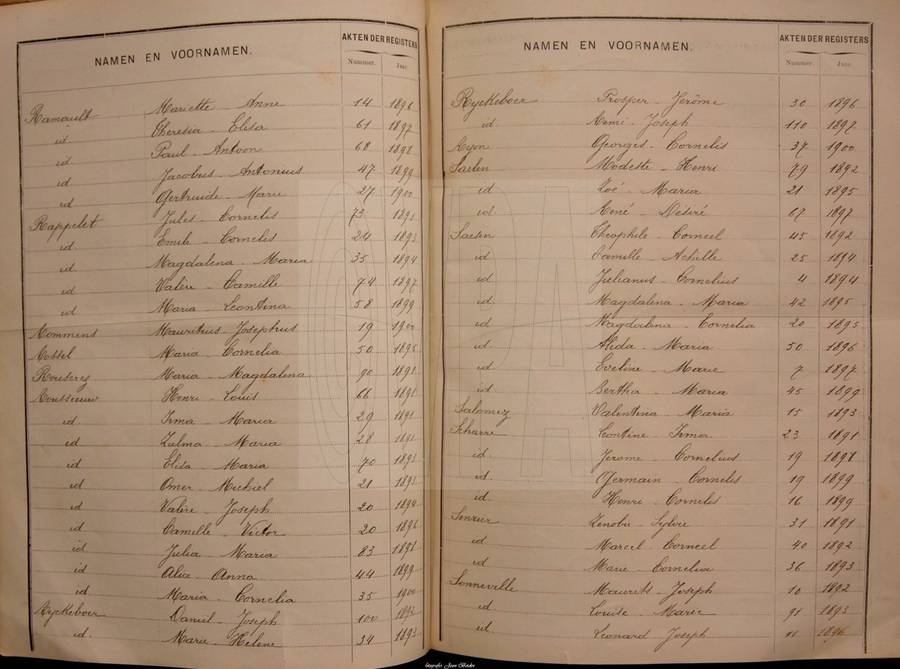 NAMEN EN VOORNAMEN. AKTEN DER REGISTERS
Nummer. Jaar
Ramault Mariette - Anne 14 1896
id Theresia - Elisa 61 1897
id Paul - Antoon 68 1898
id Jacobus - Antonius 47 1899
id Gertruide - Marie 27 1900
Rappelet Jules - Cornelis 73 1891
id Emile - Cornelis 24 1893
id Magdalena - Maria 35 1894
id Valère - Camille 74 1897
id Maria - Leontina 58 1899
Rommens Mauritius - Josephus 19 1900
Rossel Maria - Cornelia 50 1895
Maria - Magdalena 90 1891
Rousseeuw Henri - Louis 66 1891
id Irma - Maria 29 1891
id Zulma - Maria 28 1891
id Elisa - Maria 70 1893
id Omer - Michiel 21 1893
id Valère - Joseph 20 1894
id Camille - Victor 20 1896
id Julia - Maria 83 1898
id Alice - Anna 44 1899
id Maria - Cornelia 35 1900
Ryckeboer Daniel - Joseph 100 1892
id. Marie - Helene 34 1893
NAMEN EN VOORNAMEN. AKTEN DER REGISTERS
Nummer. Jaar
Ryckeboer Prosper - Jerôme 30 1896
id Remi - Joseph 110 1897
Ryon Georges - Cornelis 37 1900
Saelen Modeste - Henri 79 1892
id Zoé - Maria 21 1895
id René - Désiré 67 1897
Saesen Theophile - Corneel 45 1892
id Camille - Achille 25 1894
id Julianus - Cornelius 4 1894
id Magdalena - Maria 42 1895
id Magdalena - Cornelia 20 1895
id Alida - Maria 50 1896
id Eveline - Marie 7 1897
id Bertha - Maria 45 1899
Salomez Valentina - Maria 15 1893
Scharre Leontine - Irma 23 1891
id. Jerome - Cornelius 19 1898
id. Germain - Cornelis 19 1899
id Henri - Cornelis 16 1899
Seneur Zenobie - Sylvie 31 1891
id Marcel - Corneel 40 1892
id Marie - Cornelia 36 1893
Sonneville Maurits - Joseph 10 1892
id Louise - Marie 91 1893
id. Leonard Joseph 11 1896